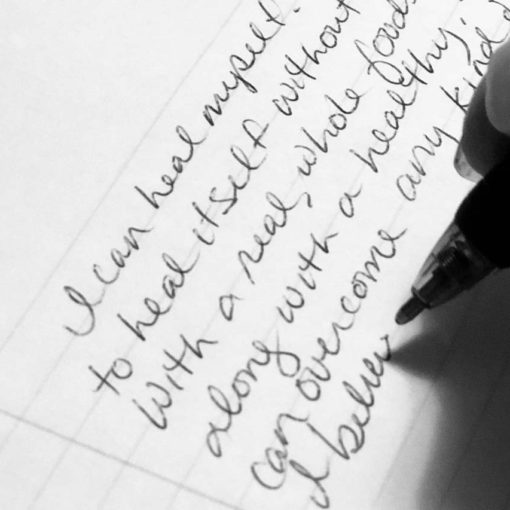 I can heal myself.
to heal itself without
with a real, whole foods
along with a healthy,
can overcome any kind
I believ